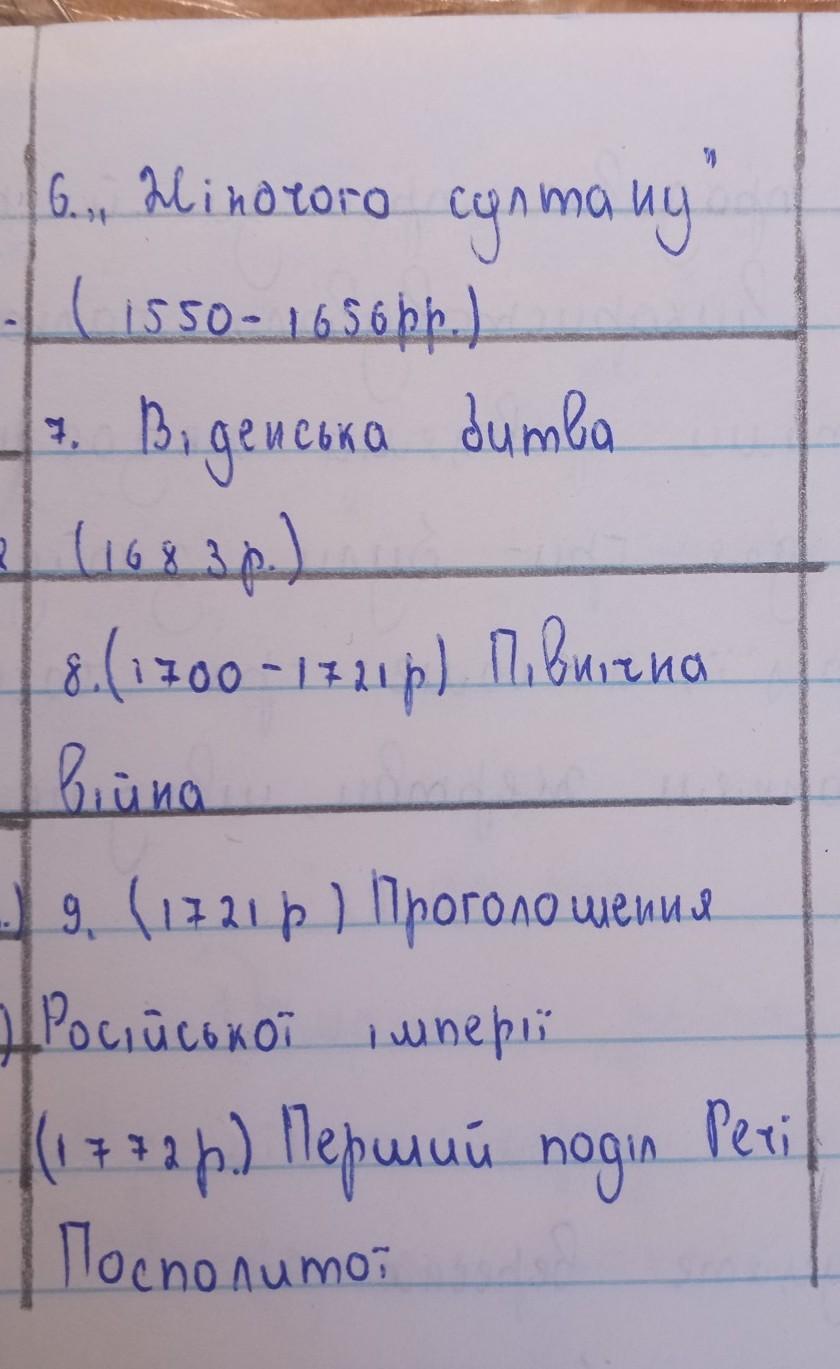 6. „Жіночого султану"
(1550-1656рр.)
7. Віденська битва
(1683р.)
8.(1700-1721р) Північна
війна
9. (1721р) Проголошення
Російської імперії
(1772р.) Перший поділ Речі
Посполитої